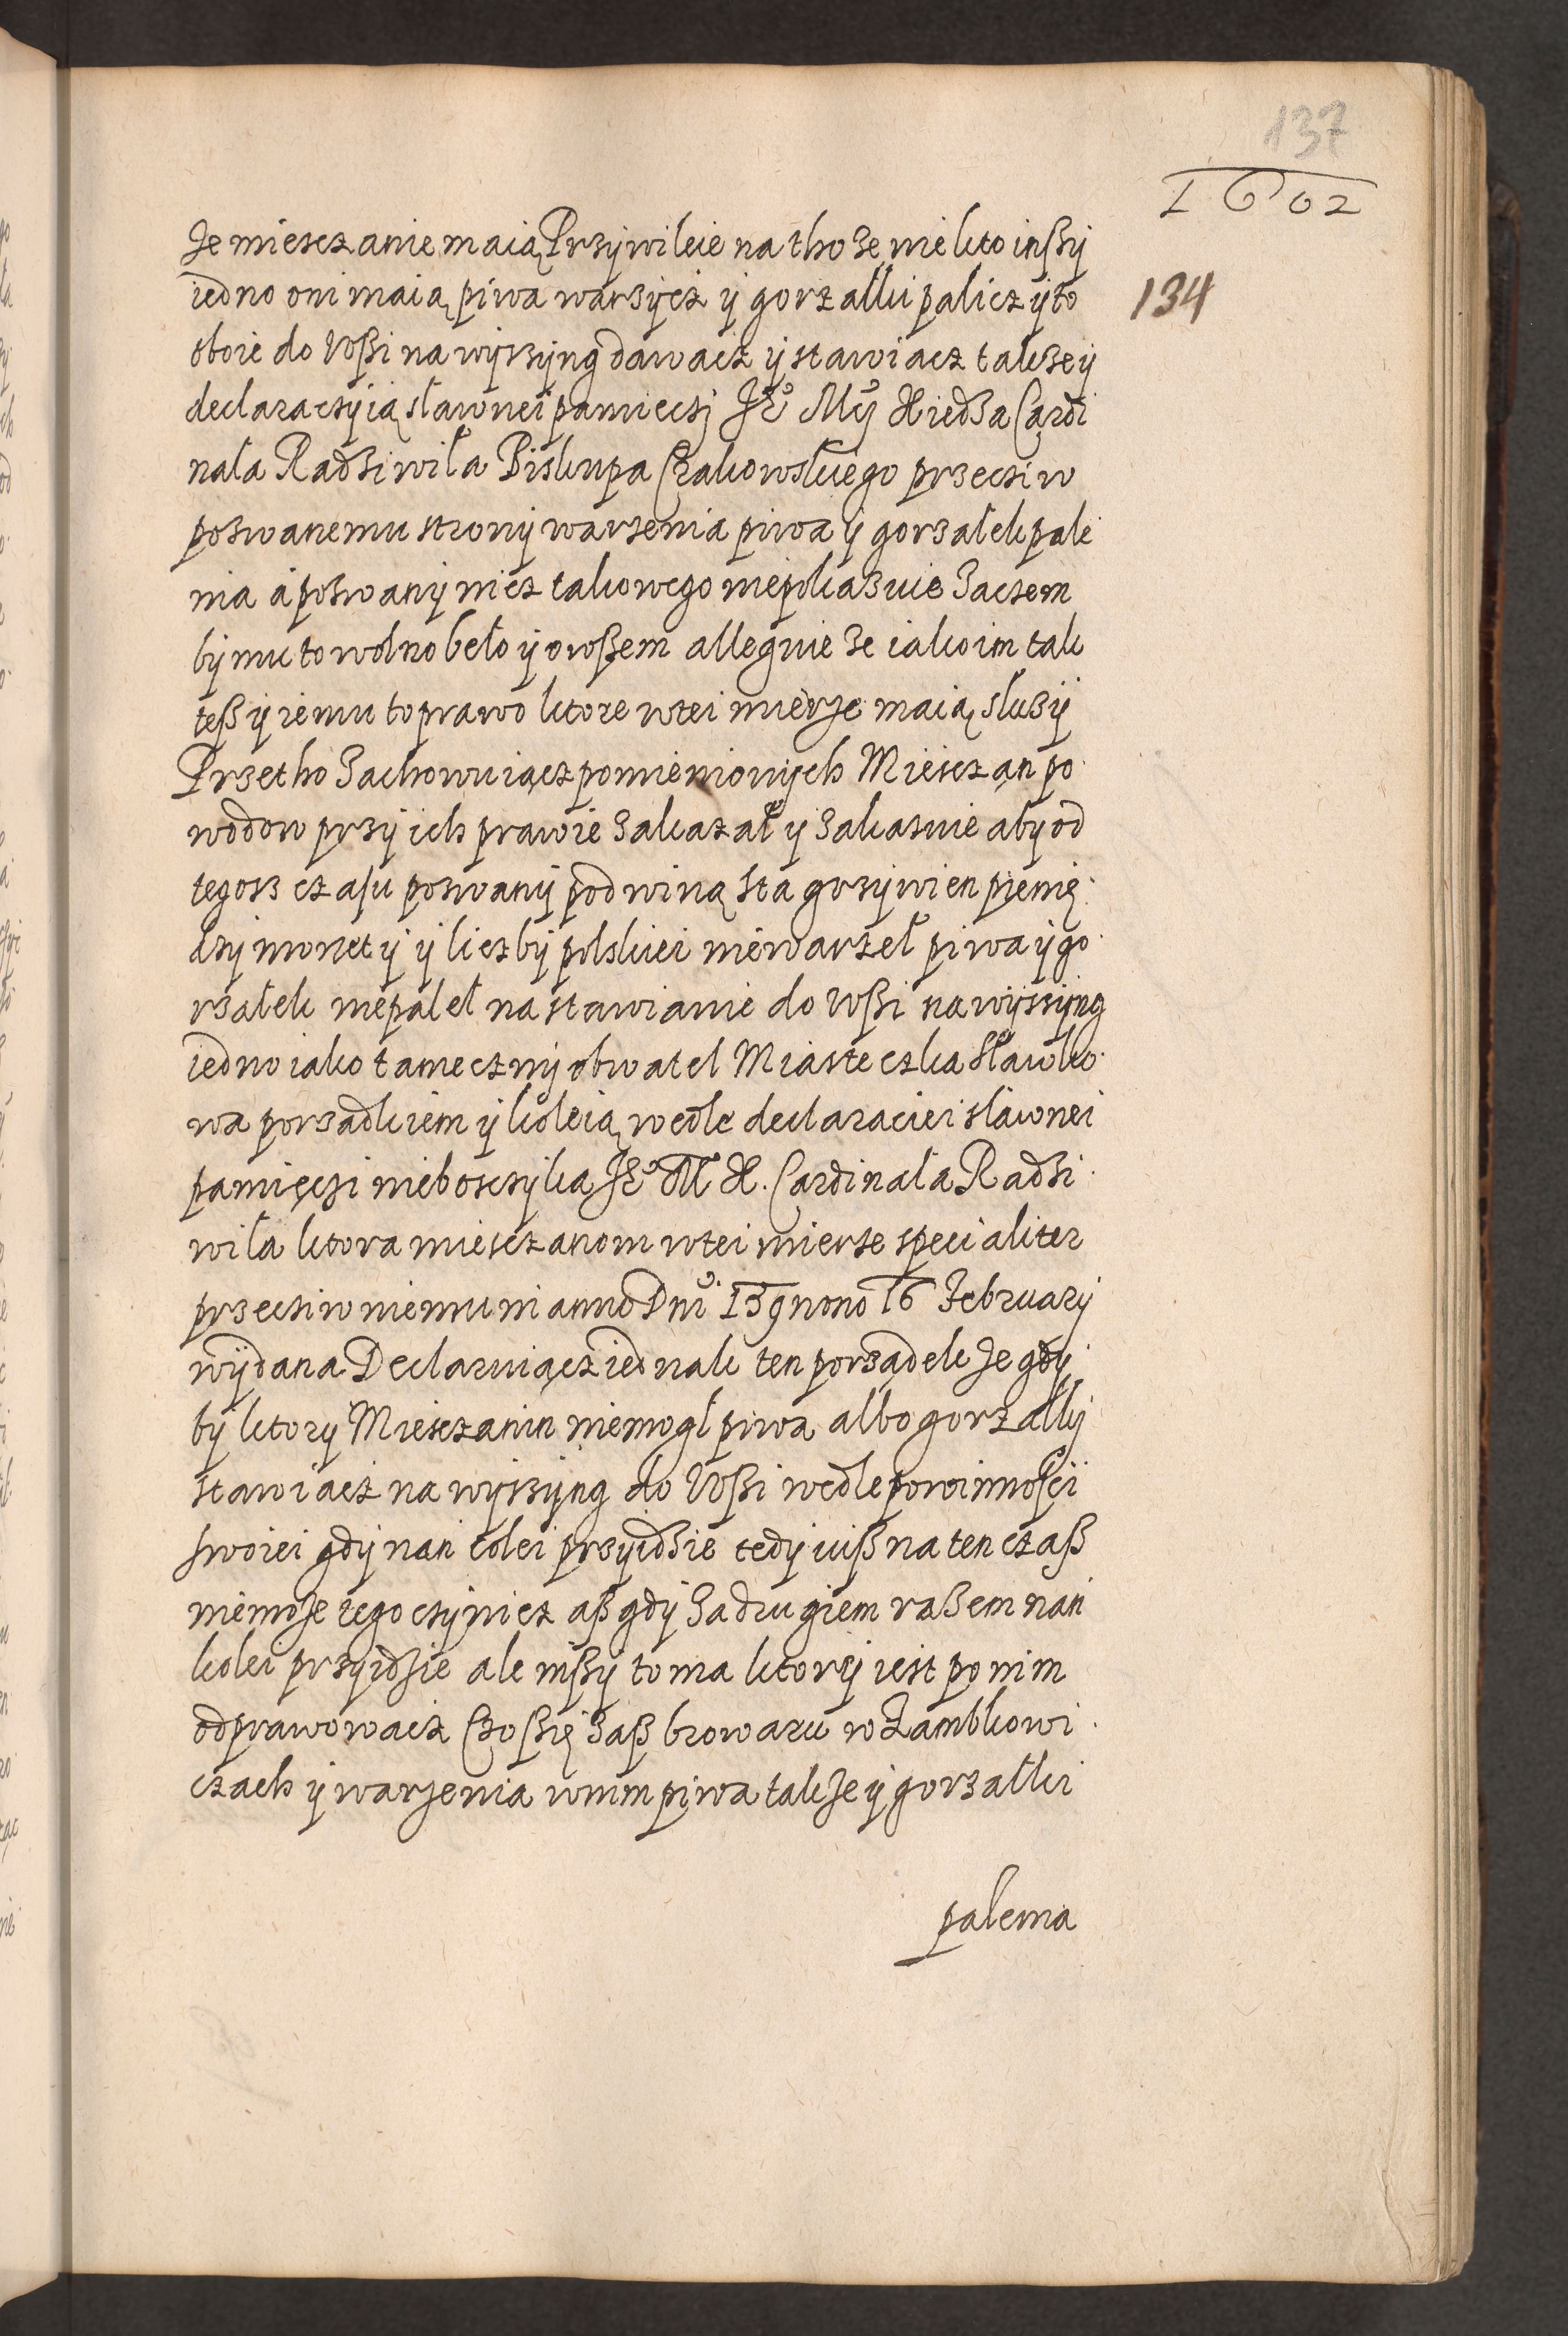 137
1602
Ze miesczanie maią Przywileie na tho ze nie kto inßy
134
iedno oni maią piwa warzycz y gorzałki palicz y to
oboie do Wßi na wyszyng dawacz y stawiacz takze y
declaraczyią sławnei pamieczi Je͠o Mci Xiedza Cardi
nala Radziwiła Biskupa Crakowskiego przeciw
pozwanemu strony warzenia piwa y gorzałek pale
nia a pozwany nicz takowego niepokazuie Zaczem
by mu to wolno beło y owßem alleguie ze iako im tak
teß y iemu to prawo ktore w tei mierze maią sluzy
Przetho Zachowuiącz pomienionych Miesczan po
wodow przy ich prawie zakazał y zakazuie aby od
tegosz czasu pozwany pod winą sta grzywien pienię
dzy monety y liczby polskiei niewarzeł piwa y go
rzałek niepaleł na stawianie do Wßi na wyszyng
iedno iako tameczny obwatel Miasteczka Sławko
wa porzadkiem y koleią wedle declaraciei sławnei
pamięczi nieboszczyka Je͠o M X. Cardinała Radzi
wiła ktora miesczanom w tei mierze specialiter
przeciw niemu ni anno Dni 159 nono 16 February
wydana Declaruiącz iednak ten porządek ze gdy
by ktory Miesczanin niemogł piwa albo gorzałky
stawiacz na wyszyng do Wßi wedle powinności
swoiei gdy nan kolei przyidzie tedy iuß na ten czaß
niemoze tego czynicz aß gdy za drugiem razem nan
kolei przyidzie ale inßy to ma ktory iest po nim
odprawowacz Czo ßię zaß browaru w Zambkowi
czach y warzenia w nim piwa takze y gorzałki
palenia